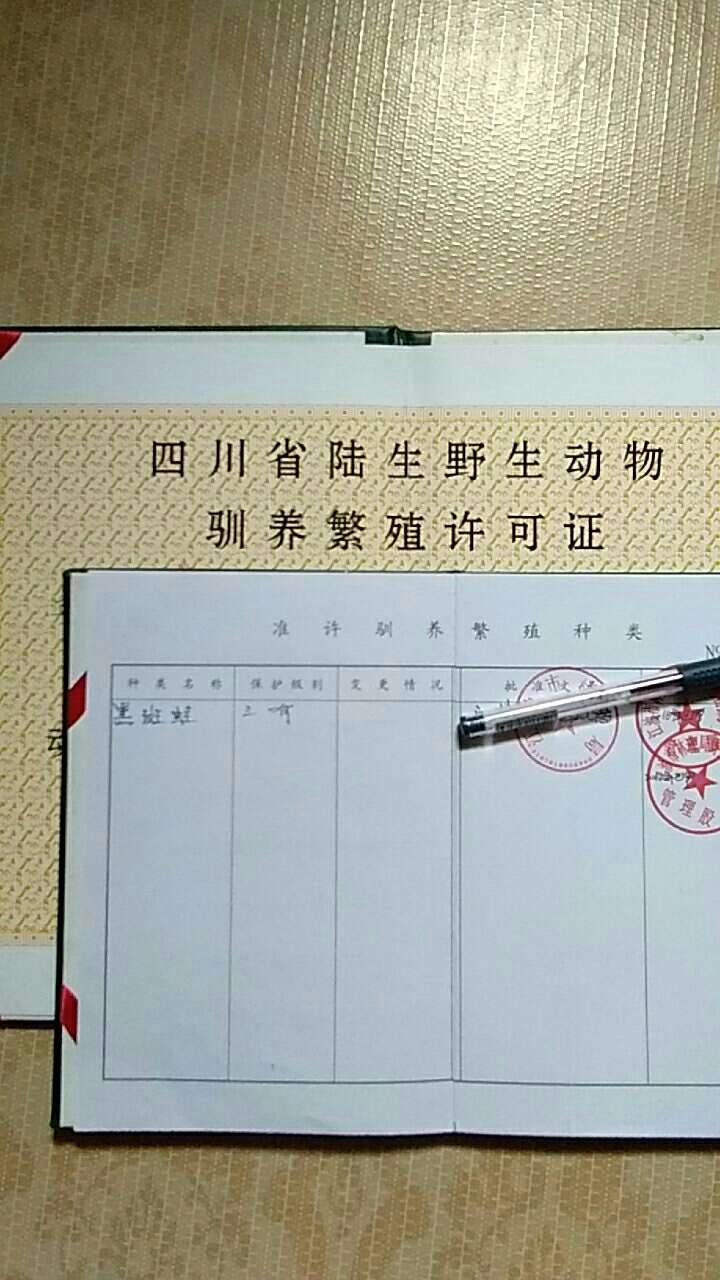 四川省陆生野生动物
驯养繁殖许可证
准许驯养繁殖种类
种类名称 保护级别 变更情况 批准文
黑斑蛙 三有
管理股